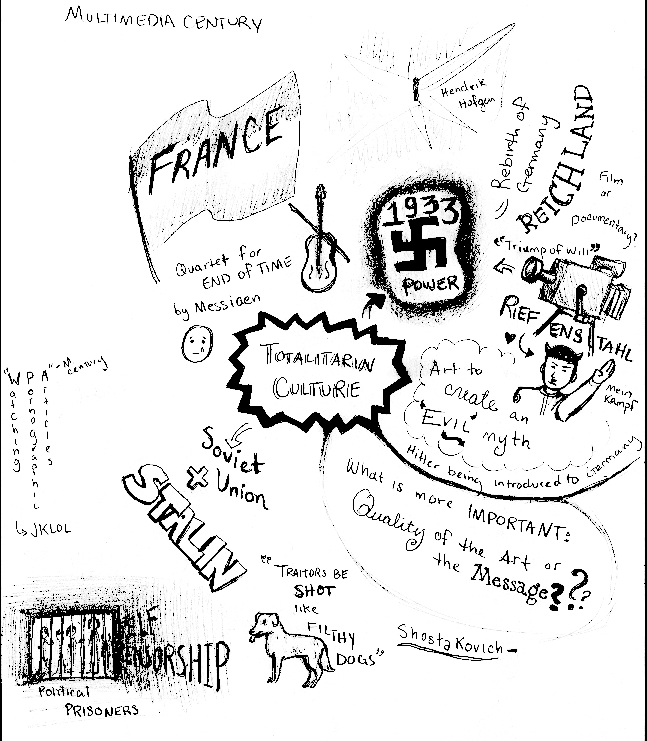 MULTIMEDIA CENTURY
FRANCE
Hendrik
Hofgen
Rebirth of
Germany
REICHLAND
Film
or
Documentary?
"Triump of Will"
1933
POWER
Quartet for
END OF TIME
by Messiaen
RIEF
ENS
TAHL
TOTALITARIAN
CULTURE
Art to
create an
"EVIL" myth
Mein
Kampf
Hitler being introduced to Germany
"WPA" - M century
Watching
Pornographic
Articles
JKLOL
Soviet
Union
STALIN
What is more IMPORTANT:
Quality of the Art or
the Message???
"TRAITORS BE
SHOT
like
FILTHY
DOGS"
Shostakovich-
SELF
CENSORSHIP
Political
PRISONERS